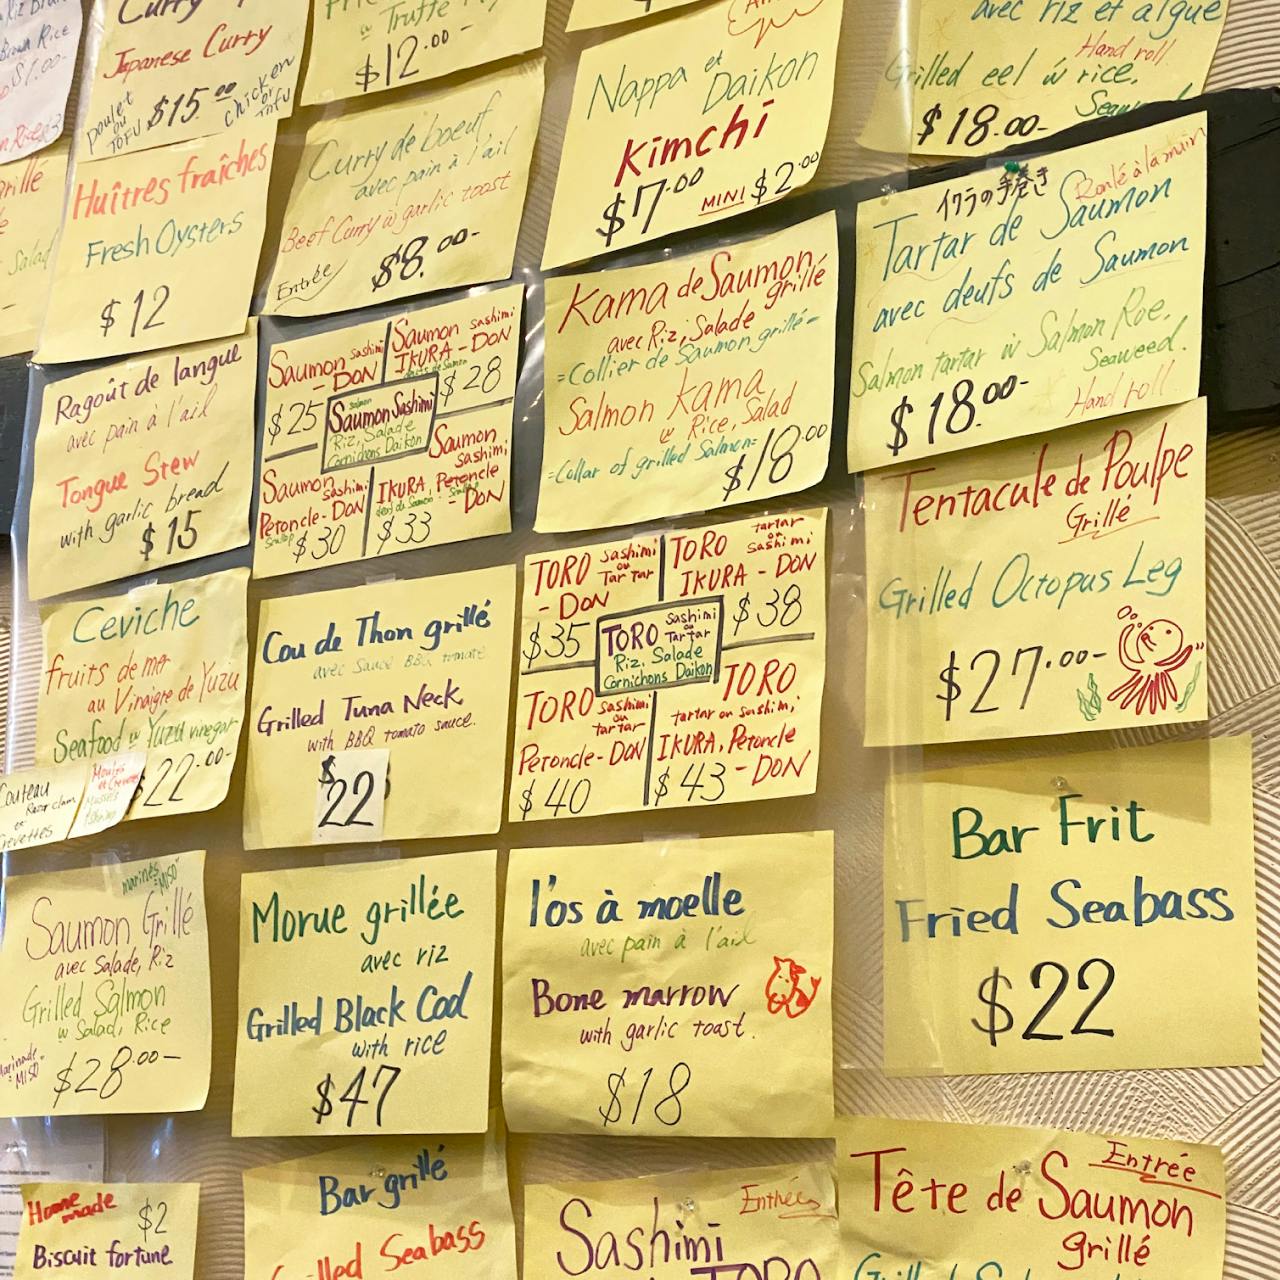 Brown Rice
$1.00-
Salad
Curry
Japanese Curry
poulet
ou
TOFU
$15.00
chicken
or
TOFU
Truffe
$12.00-
Huîtres fraîches
Fresh Oysters
$12
Curry de boeuf
avec pain à l'ail
Beef Curry w garlic toast
Entrée
$8.00-
Nappa et
Daikon
Kimchi
$7.00
MINI $2.00
avec riz et algue
Hand roll
Grilled eel w rice.
$18.00-
イクラの手巻き
Roulé à la main
Tartar de Saumon
avec deufs de Saumon
Salmon tartar w Salmon Roe.
Seaweed.
$18.00-
Hand roll
Ragoût de langue
avec pain à l'ail
Tongue Stew
with garlic bread
$15
Saumon sashimi
- DON
$25
Saumon sashimi
IKURA - DON
$28
salmon
Saumon Sashimi
Riz, Salade
Cornichons Daikon
Saumon sashimi
Petoncle - DON
$30
Saumon
sashimi
IKURA, Petoncle
- DON
$33
Kama de Saumon
grillé
avec Riz, Salade
=Collier de Saumon grillé=
Salmon kama
w Rice, Salad
=Collar of grilled Salmon=
$18.00
Tentacule de Poulpe
Grillé
Grilled Octopus Leg
$27.00-
Ceviche
fruits de mer
au Vinaigre de Yuzu
Seafood w Yuzu vinegar
$22.00-
Couteau
Razor clam
et
Crevettes
Cou de Thon grillé
avec Sauce BBQ tomate
Grilled Tuna Neck
with BBQ tomato sauce.
$
22
TORO sashimi
ou
Tartar
- DON
$35
tartar
ou
TORO sashimi
IKURA - DON
$38
TORO Sashimi
ou
Tartar
Riz, Salade
Cornichons Daikon
TORO sashimi
ou
tartar
Petoncle - DON
$40
TORO
tartar ou sashimi
IKURA, Petoncle
- DON
$43
Bar Frit
Fried Seabass
$22
marinés
"MISO"
Saumon Grillé
avec Salade, Riz
Grilled Salmon
w Salad, Rice
MISO
$28.00-
Morue grillée
avec riz
Grilled Black Cod
with rice
$47
l'os à moelle
avec pain à l'ail
Bone marrow
with garlic toast.
$18
Home
made
$2
Biscuit fortune
Bar grillé
Seabass
Entrée
Sashimi
TORO
Entrée
Tête de Saumon
grillé